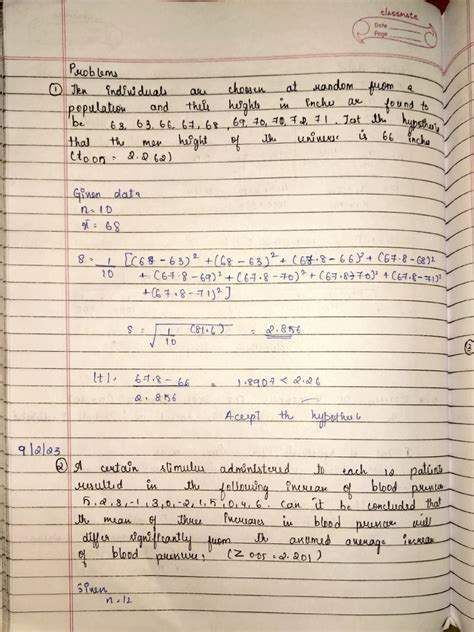 classmate
Date
Page
Problems
① Ten individuals are choosen at random from a
population and their heights in inches are found to
be 63, 63, 66, 67, 68, 69, 70, 70, 72, 71. Test the hypothesis
that the men height of the universe is 66 inches
(t0.05 = 2.262)
Given data
n=10
x̄ = 68
S = 1/10 [(68-63)² + (68-63)² + (67.8-66)² + (67.8-68)²
+ (67.8-69)² + (67.8-70)² + (67.8-70)² + (67.8-71)²
+(67.8-71)²]
S = √1/10 (81.6) = 2.856
|t|, 67.8-66 = 1.8907 < 2.26
2.856
Accept th hypothesis
9/2/23
② A certain stimulus administered to each 12 patients
resulted in the following increase of blood pressure
5, 2, 8, -1, 3, 0, -2, 1, 5, 0, 4, 6. Can it be concluded that
th mean of three increases in blood pressure will
differ significantly from th assumed average increase
of blood pressure; (Z 0.05 = 2.201)
Given
n=12